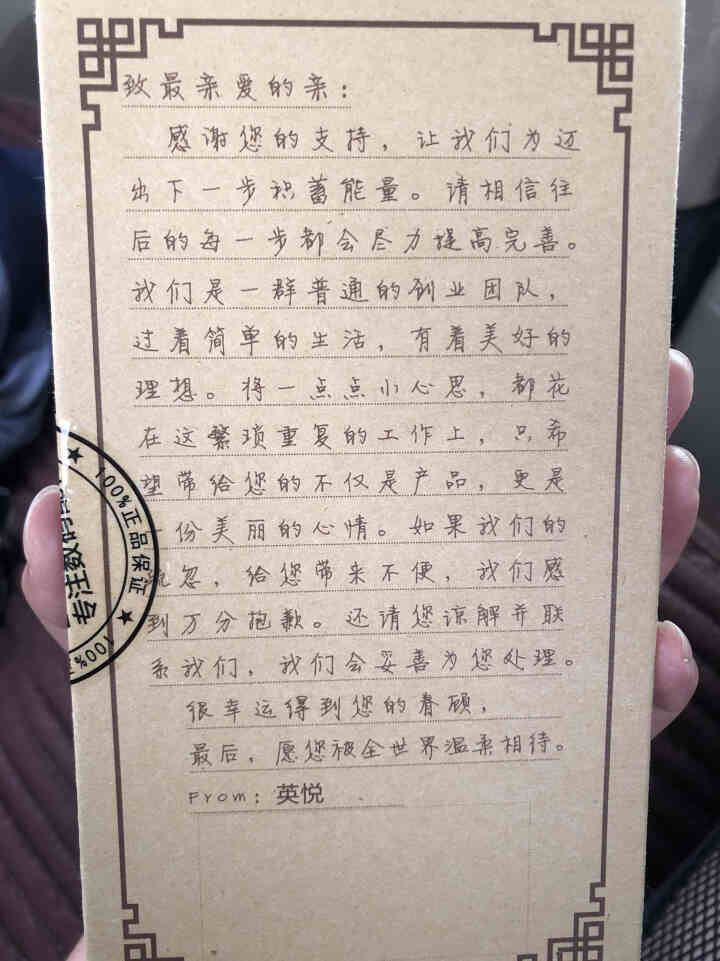 致最亲爱的亲：
感谢您的支持，让我们为迈
出下一步积蓄能量。请相信往
后的每一步都会尽力提高完善。
我们是一群普通的创业团队，
过着简单的生活，有着美好的
理想。将一点点小心思，都花
在这繁琐重复的工作上，只希
望带给您的不仅是产品，更是
一份美丽的心情。如果我们的
疏忽，给您带来不便，我们感
到万分抱歉。还请您谅解并联
系我们，我们会妥善为您处理。
很幸运得到您的眷顾，
最后，愿您被全世界温柔相待。
From：英悦
100%正品保证
专注数码
100%